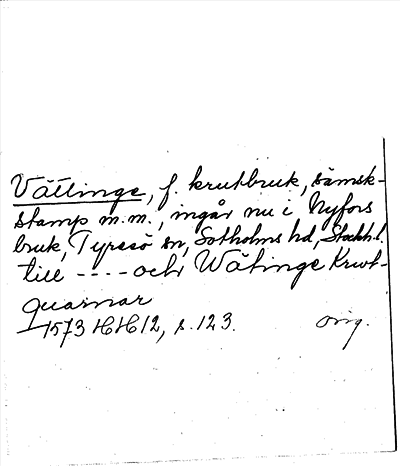 Vättinge, f. krutbruk, sämsk-
stamp m.m., ingår nu i Nyfors
bruk, Tyresö sn, Sotholms hd, Stockh. l.
till ---- och Wätinge Krut-
quarnar
1573 HH 12, s. 123. orig.